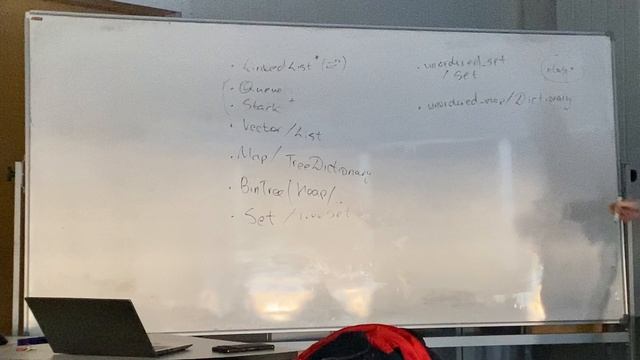 · LinkedList* (⇄)
· Queue
· Stack +
· Vector/List
· Map/TreeDictionary
· BinTree/Heap/..
· Set /
· unordured_set
/ Set
· unordured_map/Dictionary